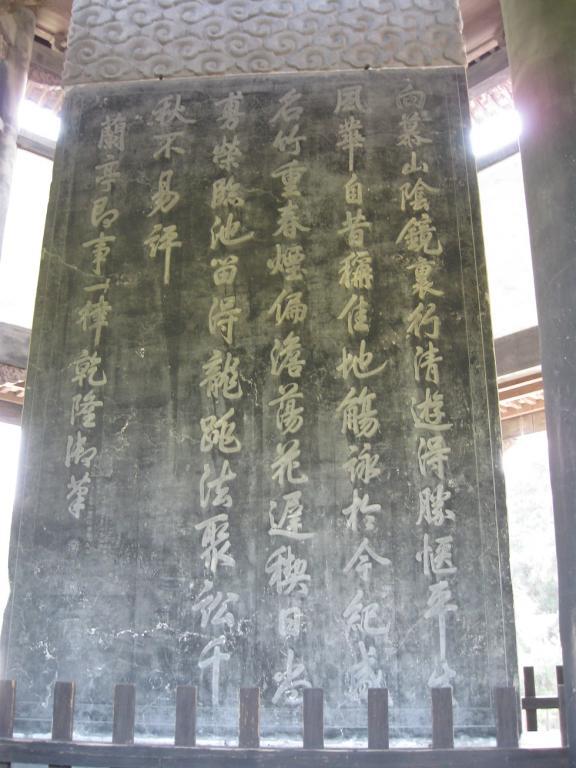 向慕山陰鏡裏行清遊得勝愜平生
風華自昔稱佳地觴詠於今紀盛
名竹重春煙偏澹蕩花遲禊日尚
剪榮臨池留得龍跳法聚訟千
秋不易評
蘭亭即事一律乾隆御筆